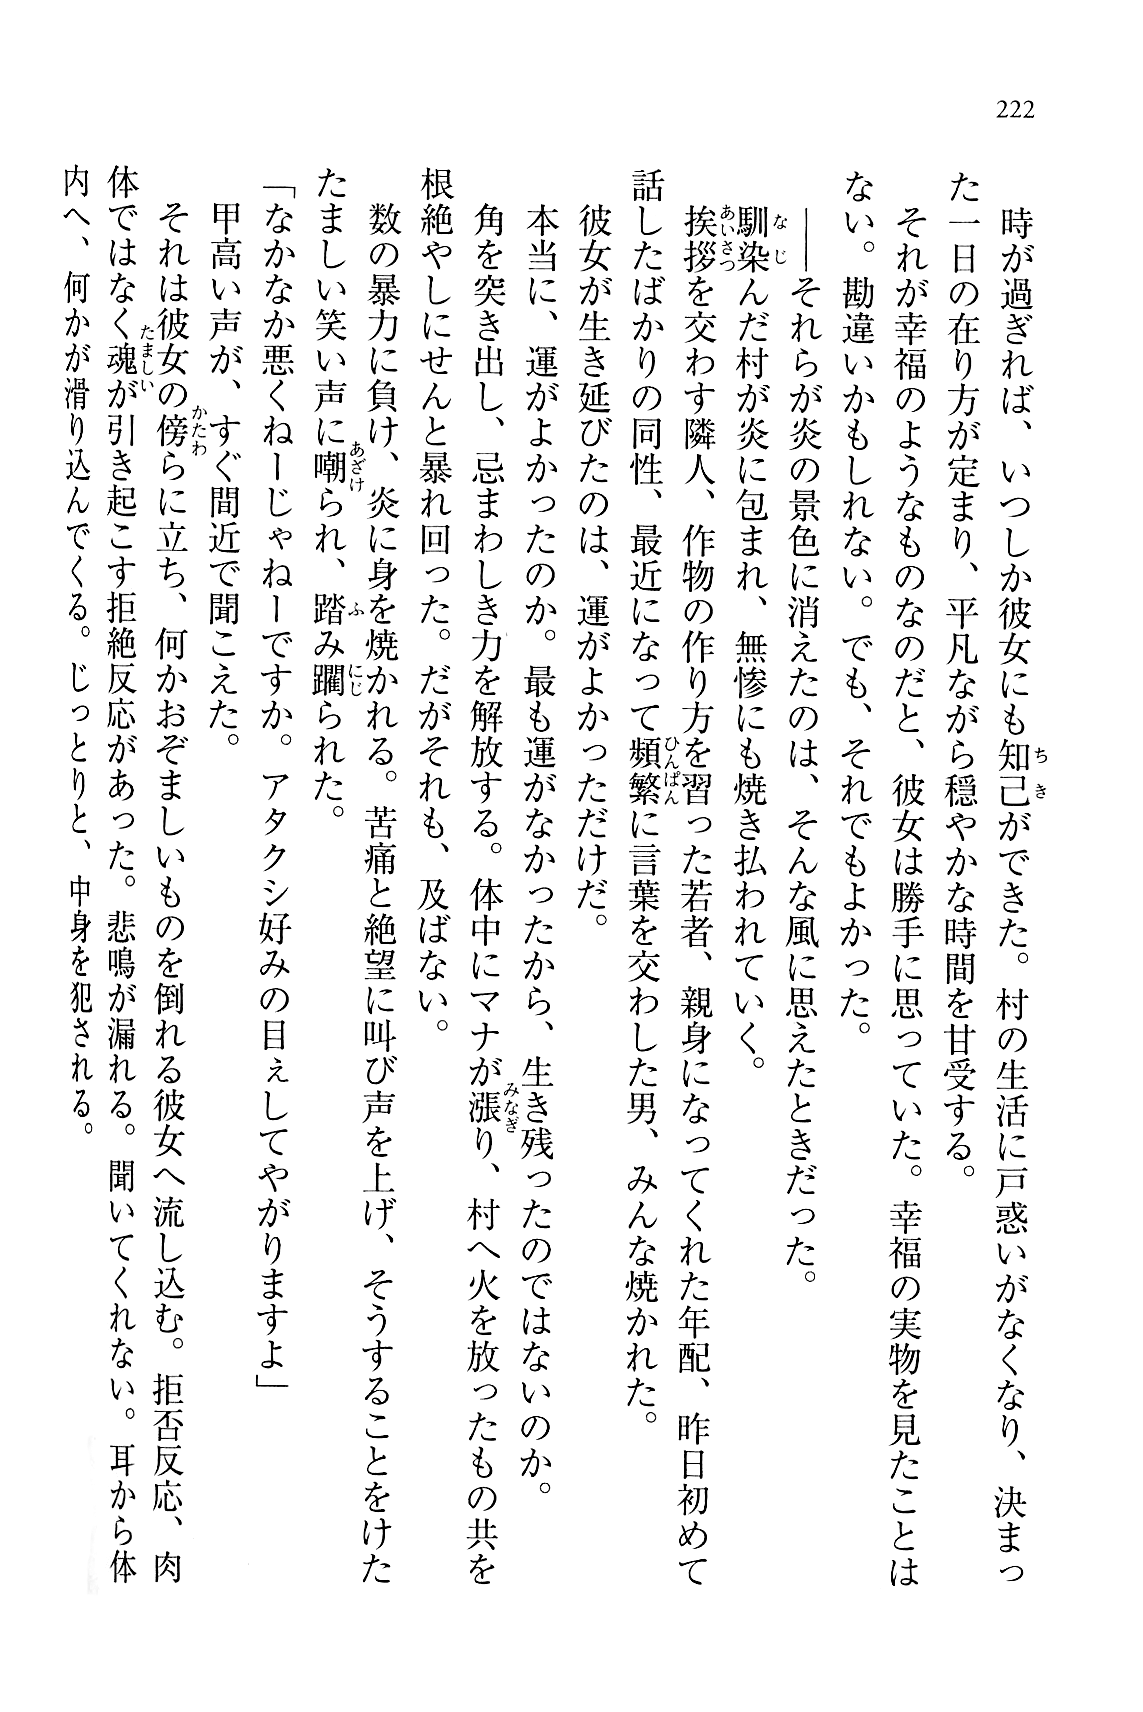 222
時が過ぎれば、いつしか彼女にも知己ができた。村の生活に戸惑いがなくなり、決まっ
た一日の在り方が定まり、平凡ながら穏やかな時間を甘受する。
それが幸福のようなものなのだと、彼女は勝手に思っていた。幸福の実物を見たことは
ない。勘違いかもしれない。でも、それでもよかった。
――それらが炎の景色に消えたのは、そんな風に思えたときだった。
馴染んだ村が炎に包まれ、無惨にも焼き払われていく。
挨拶を交わす隣人、作物の作り方を習った若者、親身になってくれた年配、昨日初めて
話したばかりの同性、最近になって頻繁に言葉を交わした男、みんな焼かれた。
彼女が生き延びたのは、運がよかっただけだ。
本当に、運がよかったのか。最も運がなかったから、生き残ったのではないのか。
角を突き出し、忌まわしき力を解放する。体中にマナが漲り、村へ火を放ったもの共を
根絶やしにせんと暴れ回った。だがそれも、及ばない。
数の暴力に負け、炎に身を焼かれる。苦痛と絶望に叫び声を上げ、そうすることをけた
たましい笑い声に嘲られ、踏み躙られた。
「なかなか悪くねーじゃねーですか。アタクシ好みの目ぇしてやがりますよ」
甲高い声が、すぐ間近で聞こえた。
それは彼女の傍らに立ち、何かおぞましいものを倒れる彼女へ流し込む。拒否反応、肉
体ではなく魂が引き起こす拒絶反応があった。悲鳴が漏れる。聞いてくれない。耳から体
内へ、何かが滑り込んでくる。じっとりと、中身を犯される。